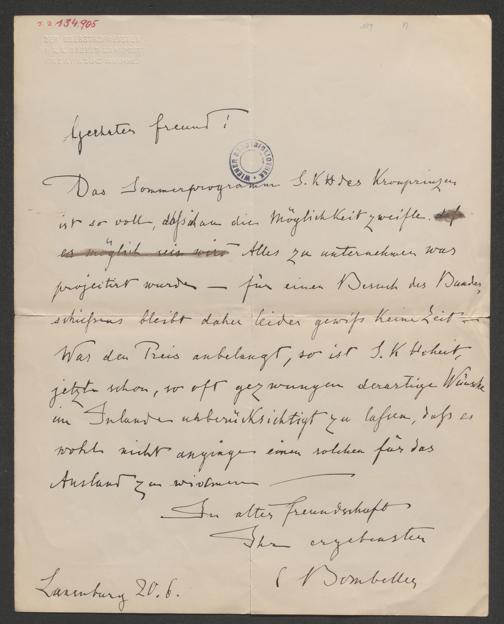 134.905
DER OBERSTHOFMEISTER
Geehrter Freund!
WIENER STADTBIBLIOTHEK
Das Sommerprogramm S. K H des Kronprinzen
ist so voll, daß ich an die Möglichkeit zweifle. daß
es möglich sein wird Alles zu unternehmen was
projectirt wurde — für einen Besuch des Bundes
schießens bleibt daher leider gewiß keine Zeit —
Was den Preis anbelangt, so ist S. K Hoheit,
jetzt schon, so oft gezwungen derartige Wünsche
im Inlande unberücksichtigt zu laßen, daß es
wohl nicht anginge einen solchen für das
Ausland zu widmen —
In alter Freundschaft
Ihr ergebenster
C Bombelles
Laxenburg 20. 6.